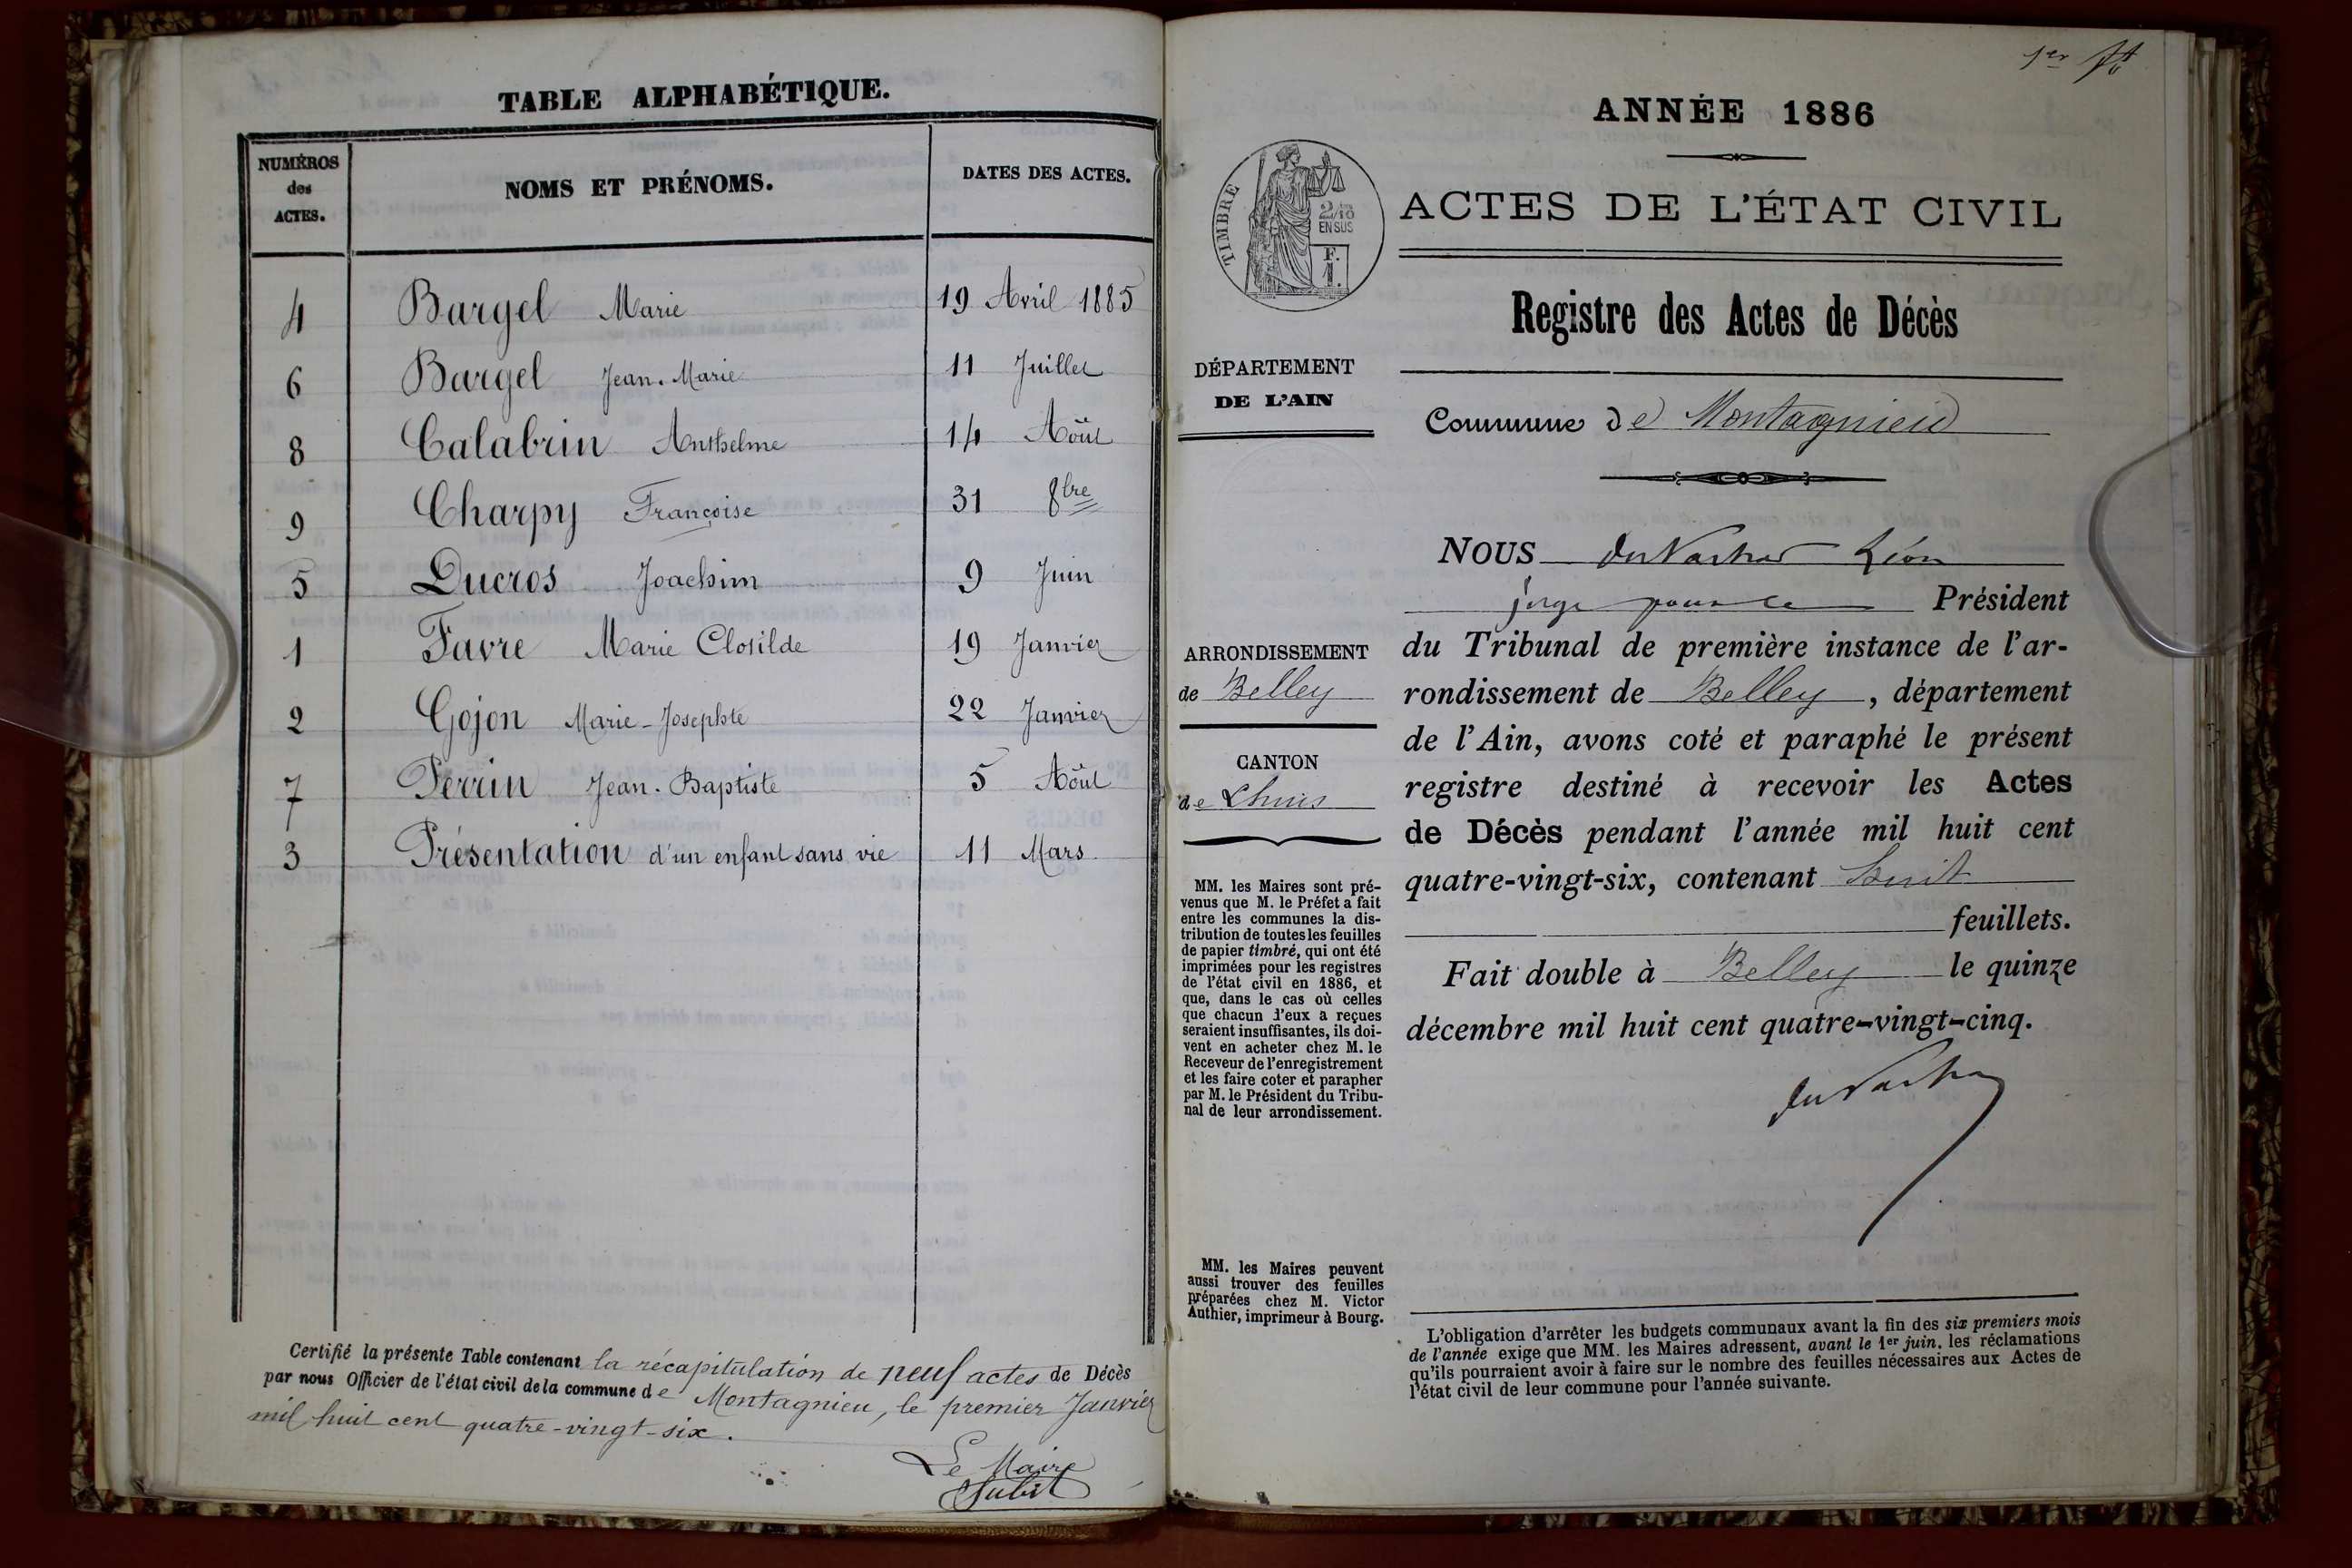 TABLE ALPHABÉTIQUE.
NUMÉROS
des
ACTES.
NOMS ET PRÉNOMS.
DATES DES ACTES.
4 Bargel Marie 19 Avril 1885
6 Bargel Jean-Marie 11 Juillet
8 Calabrin Anthelme 14 Aôut
9 Charpy Françoise 31 8bre
5 Ducros Joachim 9 Juin
1 Favre Marie Clotilde 19 Janvier
2 Gojon Marie-Josephte 22 Janvier
7 Perrin Jean-Baptiste 5 Aôut
3 Présentation d'un enfant sans vie 11 Mars
Certifié la présente Table contenant la récapitulation de neuf actes de Décès
par nous Officier de l'état civil de la commune de Montagnieu, le premier Janvier
mil huit cent quatre-vingt-six.
Le Maire
1er
ANNÉE 1886
TIMBRE
2/10
EN SUS
F.
1.
ACTES DE L'ÉTAT CIVIL
Registre des Actes de Décès
DÉPARTEMENT
DE L'AIN
Commune de Montagnieu
ARRONDISSEMENT
de Belley
CANTON
de Lhuis
MM. les Maires sont pré-
venus que M. le Préfet a fait
entre les communes la dis-
tribution de toutes les feuilles
de papier timbré, qui ont été
imprimées pour les registres
de l'état civil en 1886, et
que, dans le cas où celles
que chacun d'eux a reçues
seraient insuffisantes, ils doi-
vent en acheter chez M. le
Receveur de l'enregistrement
et les faire coter et parapher
par M. le Président du Tribu-
nal de leur arrondissement.
MM. les Maires peuvent
aussi trouver des feuilles
préparées chez M. Victor
Authier, imprimeur à Bourg.
NOUS Léon
juge pour le Président
du Tribunal de première instance de l'ar-
rondissement de Belley, département
de l'Ain, avons coté et paraphé le présent
registre destiné à recevoir les Actes
de Décès pendant l'année mil huit cent
quatre-vingt-six, contenant huit
feuillets.
Fait double à Belley le quinze
décembre mil huit cent quatre-vingt-cinq.
L'obligation d'arrêter les budgets communaux avant la fin des six premiers mois
de l'année exige que MM. les Maires adressent, avant le 1er juin, les réclamations
qu'ils pourraient avoir à faire sur le nombre des feuilles nécessaires aux Actes de
l'état civil de leur commune pour l'année suivante.